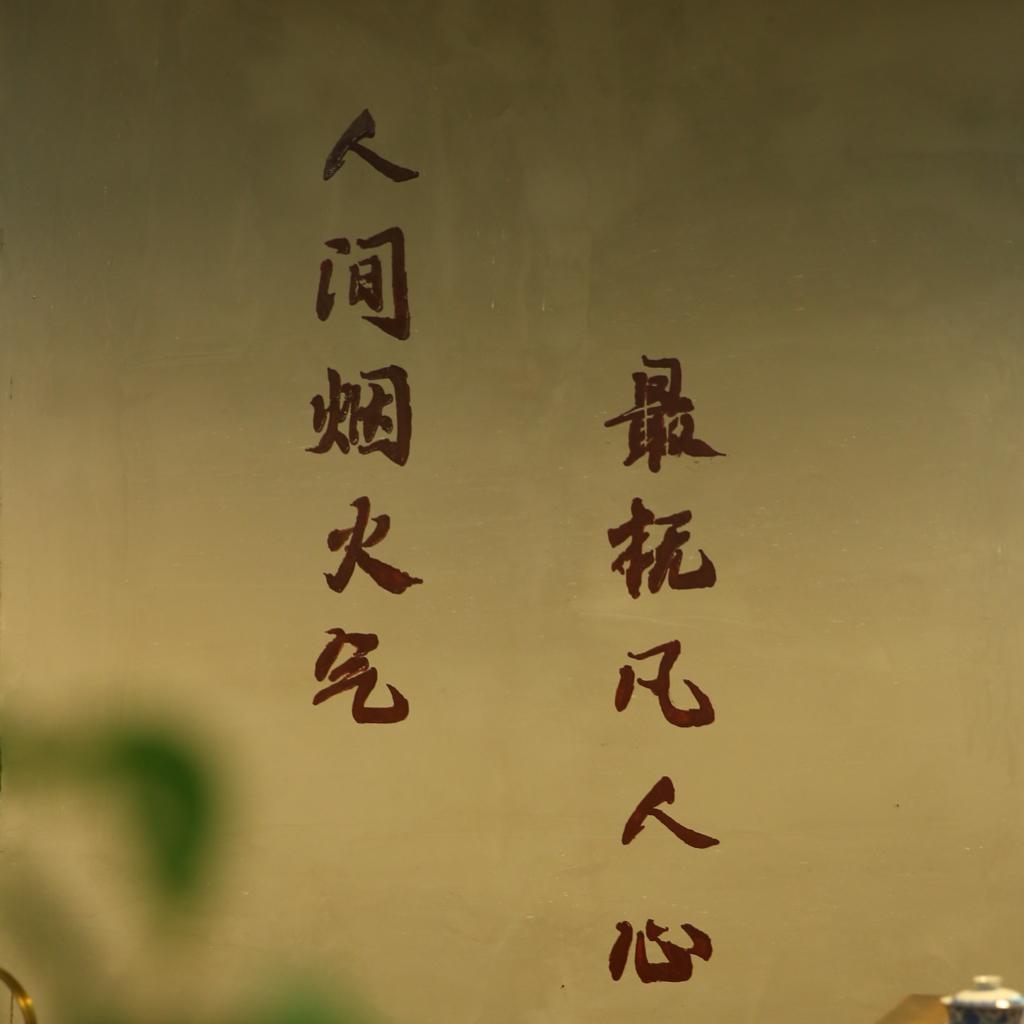 人间烟火气
最抚凡人心